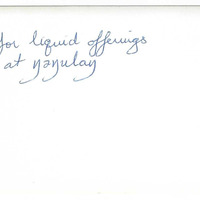 for liquid offerings
at nənulay